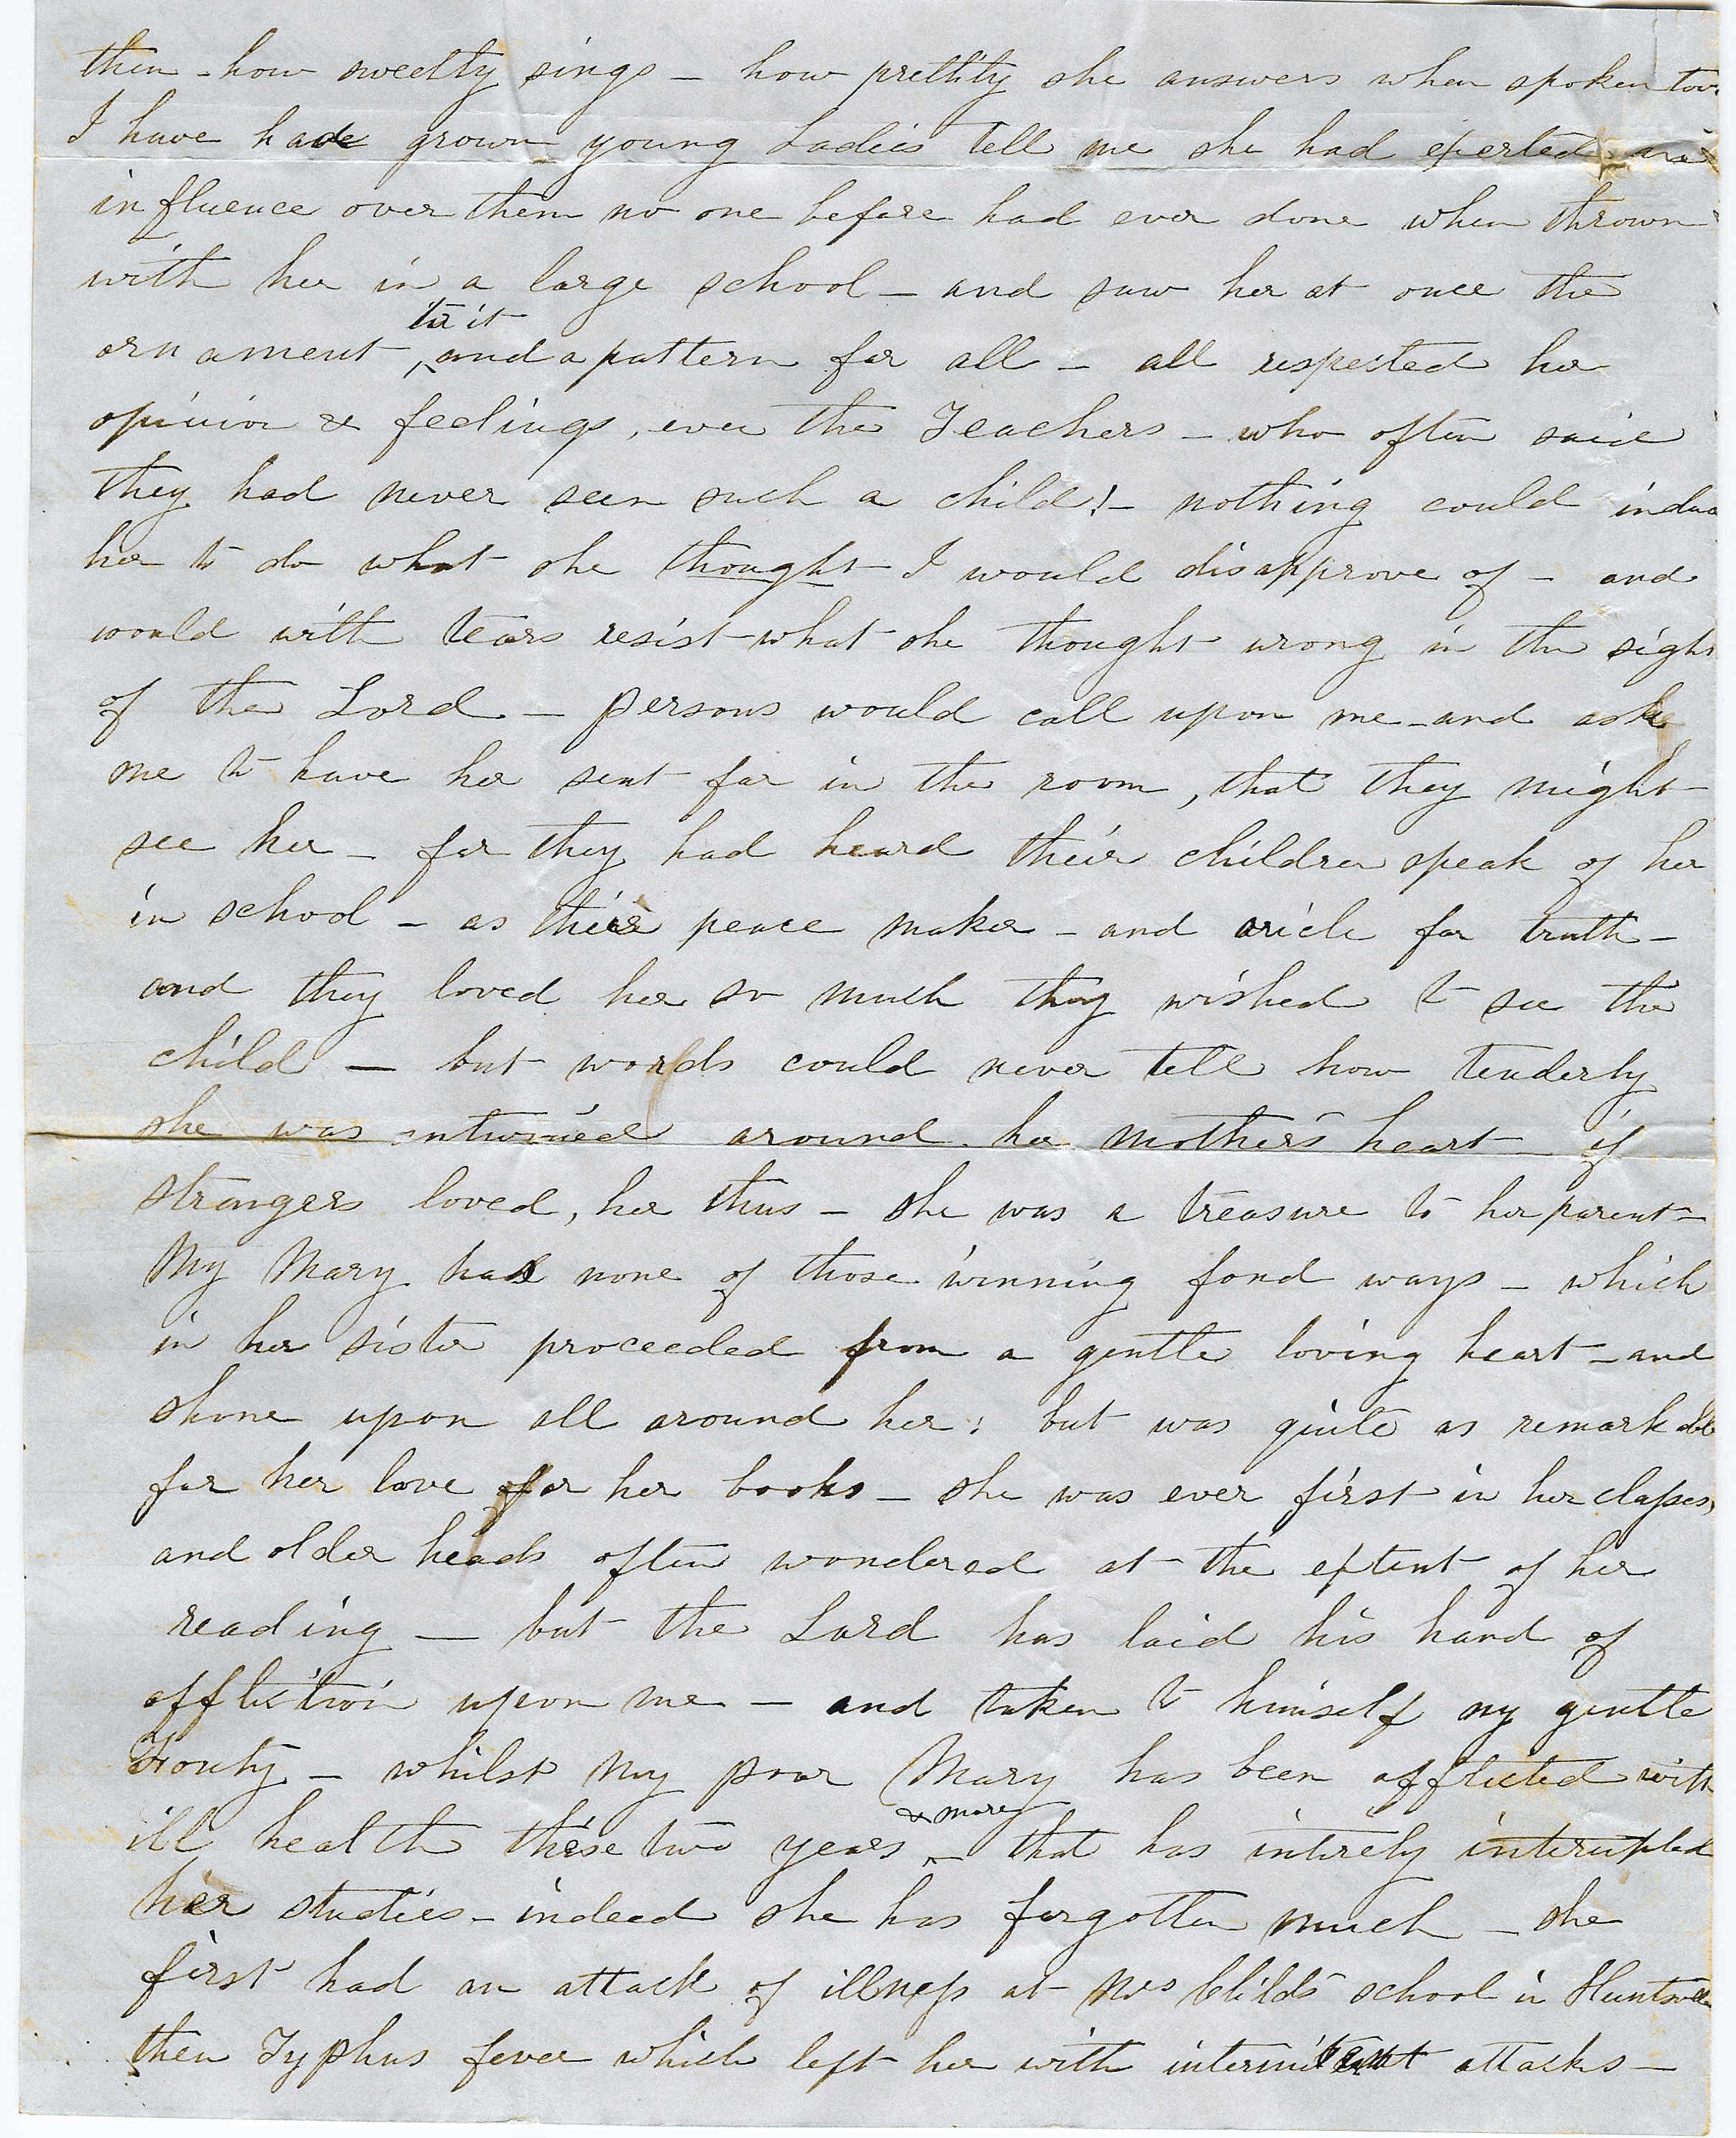 then - how sweetly sings - how prettily she answers when spoken too
I have had grown young Ladies tell me she had exerted an
influence over them no one before had ever done when thrown
with her in a large school - and saw her at once the
to it
ornament, and a pattern for all - all respected her
opinion & feelings, even the Teachers - who often said
they had never seen such a child! - nothing could
her to do what she thought I would disapprove of - and
would with tears resist what she thought wrong in the sight
of the Lord - persons would call upon me - and ask
me to have her sent for in the room, that they might
see her - for they had heard their children speak of her
in school - as their peace maker - and oricle for truth -
and they loved her so much they wished to see the
child - but words could never tell how tenderly
she was entwined around her mother's heart - if
strangers loved, her thus - she was a treasure to her parent -
My Mary had none of those winning fond ways - which
in her sister proceeded from a gentle loving heart - and
shone upon all around her; but was quite as remarkable
for her love for her books - she was ever first in her classes,
and older heads often wondered at the extent of her
reading - but the Lord has laid his hand of
affliction upon me - and taken to himself my gentle
- whilst my poor Mary has been afflicted with
& more
ill health these two years - that has intirely interupted
her studies - indeed she has forgotten much - she
first had an attack of illness at Mrs Childs school in Huntsville
then Typhus fever which left her with intermittent attacks -